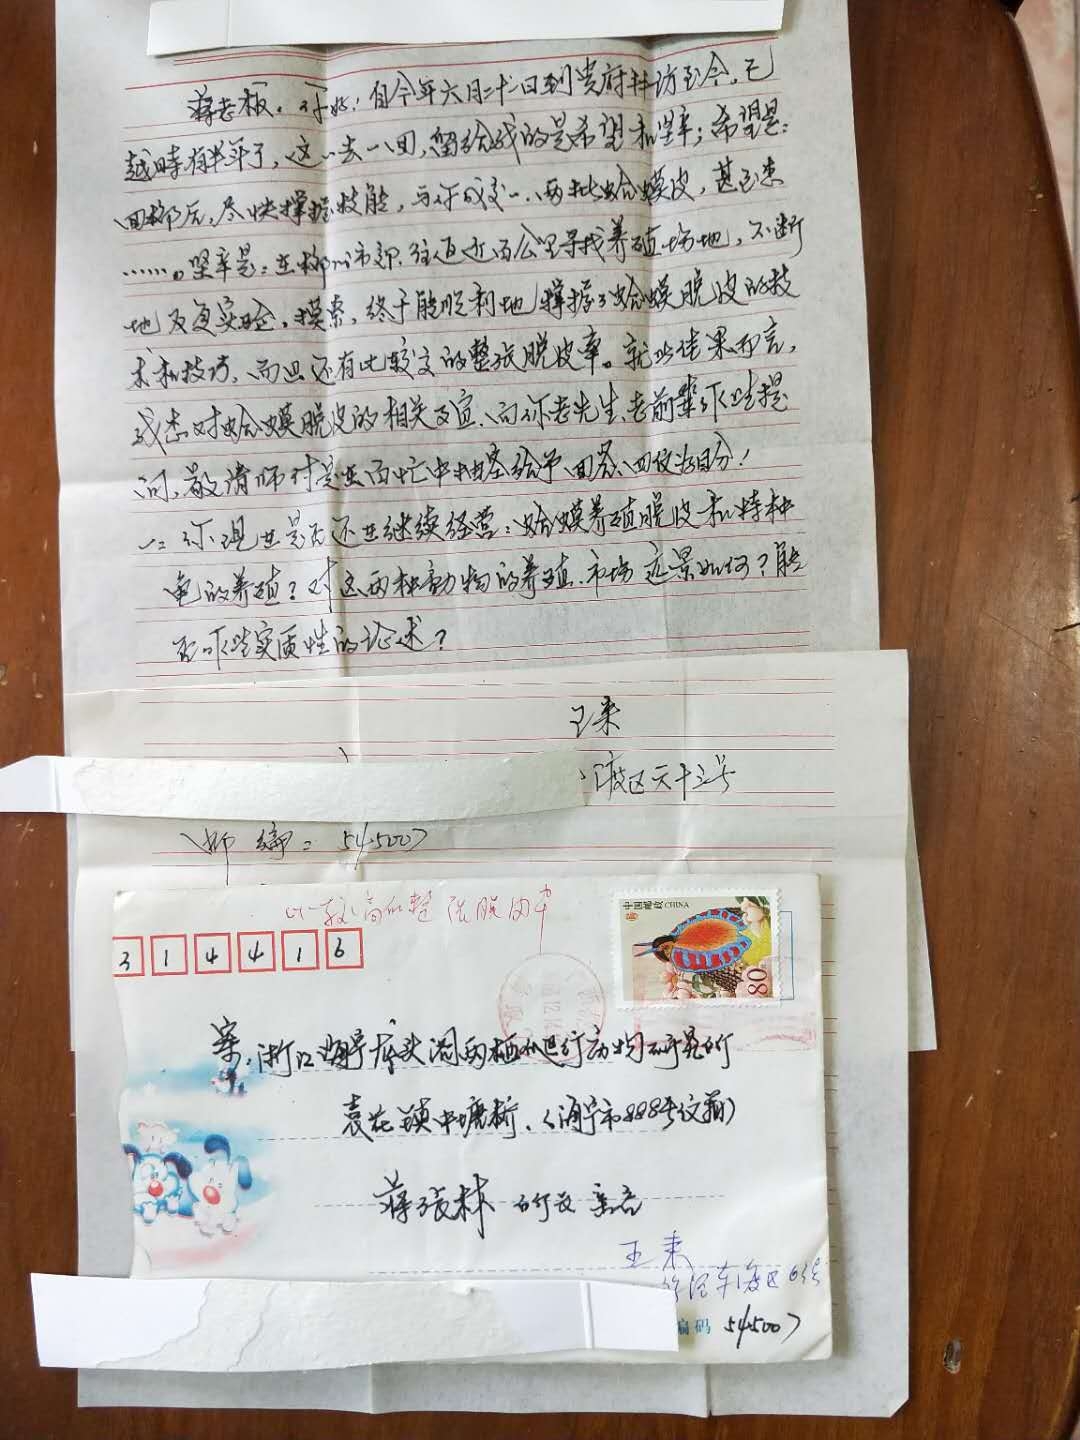 蒋老板:你好!自今年六月二十日到贵府拜访至今,已
越时有半年了,这一去一回,留给我的是希望和坚辛;希望是:
回柳后,尽快撑握技能,与你成交一、两批蛤蟆皮,甚至患
……。坚辛是:在柳州市郊、往返近百公里寻找养殖场地,不断
地反复实验、摸索,终于能顺利地撑握了蛤蟆脱皮的技
术和技巧,而且还有比较文的整张脱皮率。就此佳果而言,
我想对蛤蟆脱皮的相关事宜、向你老先生、老前辈作些提
问,敬请师付在百忙中抽空给予回答、回收为自分!
一:你现在是否还在继续经营:蛤蟆养殖脱皮和特种
龟的养殖?对这两种动物的养殖、市场远景如何?能
否作些实质性的论述?
王来
渡区六十三号
邮编:545007
比较高的整张脱皮率
314416
中国邮政 CHINA
80
寄:浙江海宁 两栖爬行动物研究所
袁花镇中塘桥、(海宁市888号信箱)
蒋張林 所长 亲启
王来
渡区63号
编码 545007